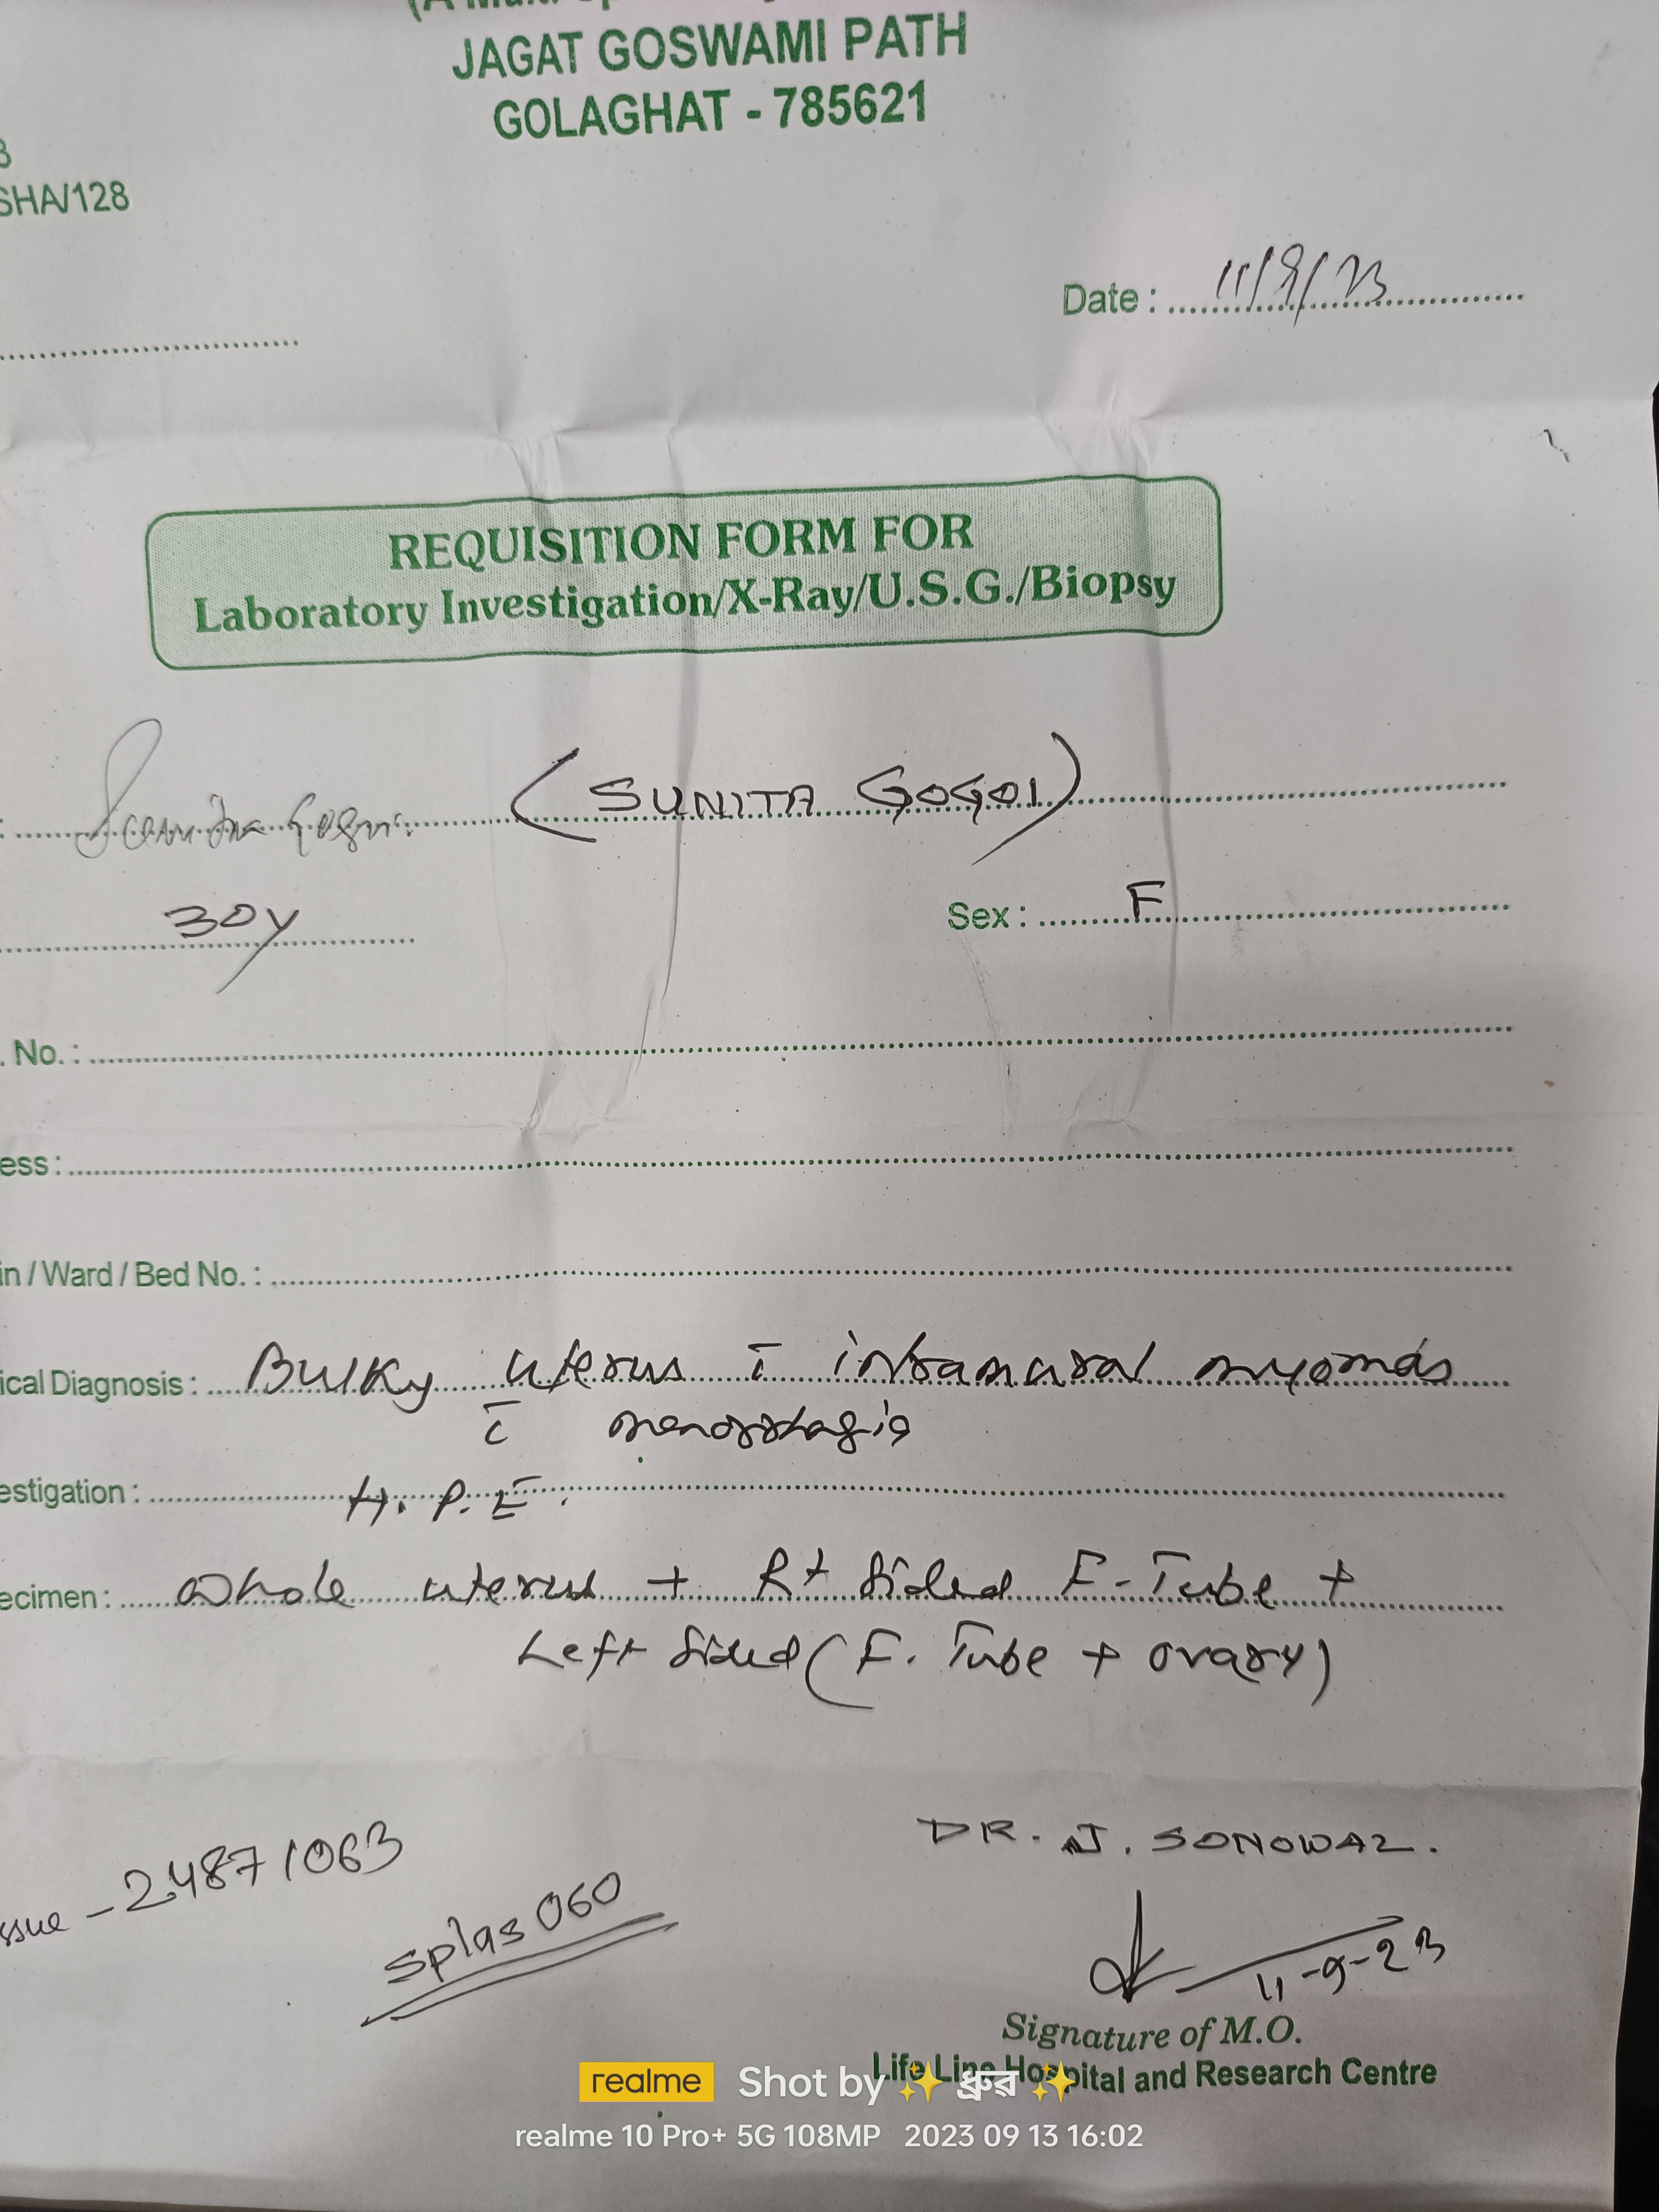 JAGAT GOSWAMI PATH
GOLAGHAT - 785621
SHA/128
Date : 11/9/23
REQUISITION FORM FOR
Laboratory Investigation/X-Ray/U.S.G./Biopsy
(SUNITA GOGOI)
30y
Sex : F
. No. :
ess :
in / Ward / Bed No. :
ical Diagnosis : Bulky uterus c̄ intramural myomas
c̄ menorrhagia
estigation : H.P.E.
ecimen : whole uterus + Rt sided F-Tube +
Left sided (F. Tube + ovary)
DR. J. SONOWAL.
ssue - 24871063
splas 060
11-9-23
Signature of M.O.
Life Line Hospital and Research Centre
realme Shot by ✨ ধ্রুব ✨
realme 10 Pro+ 5G 108MP 2023 09 13 16:02